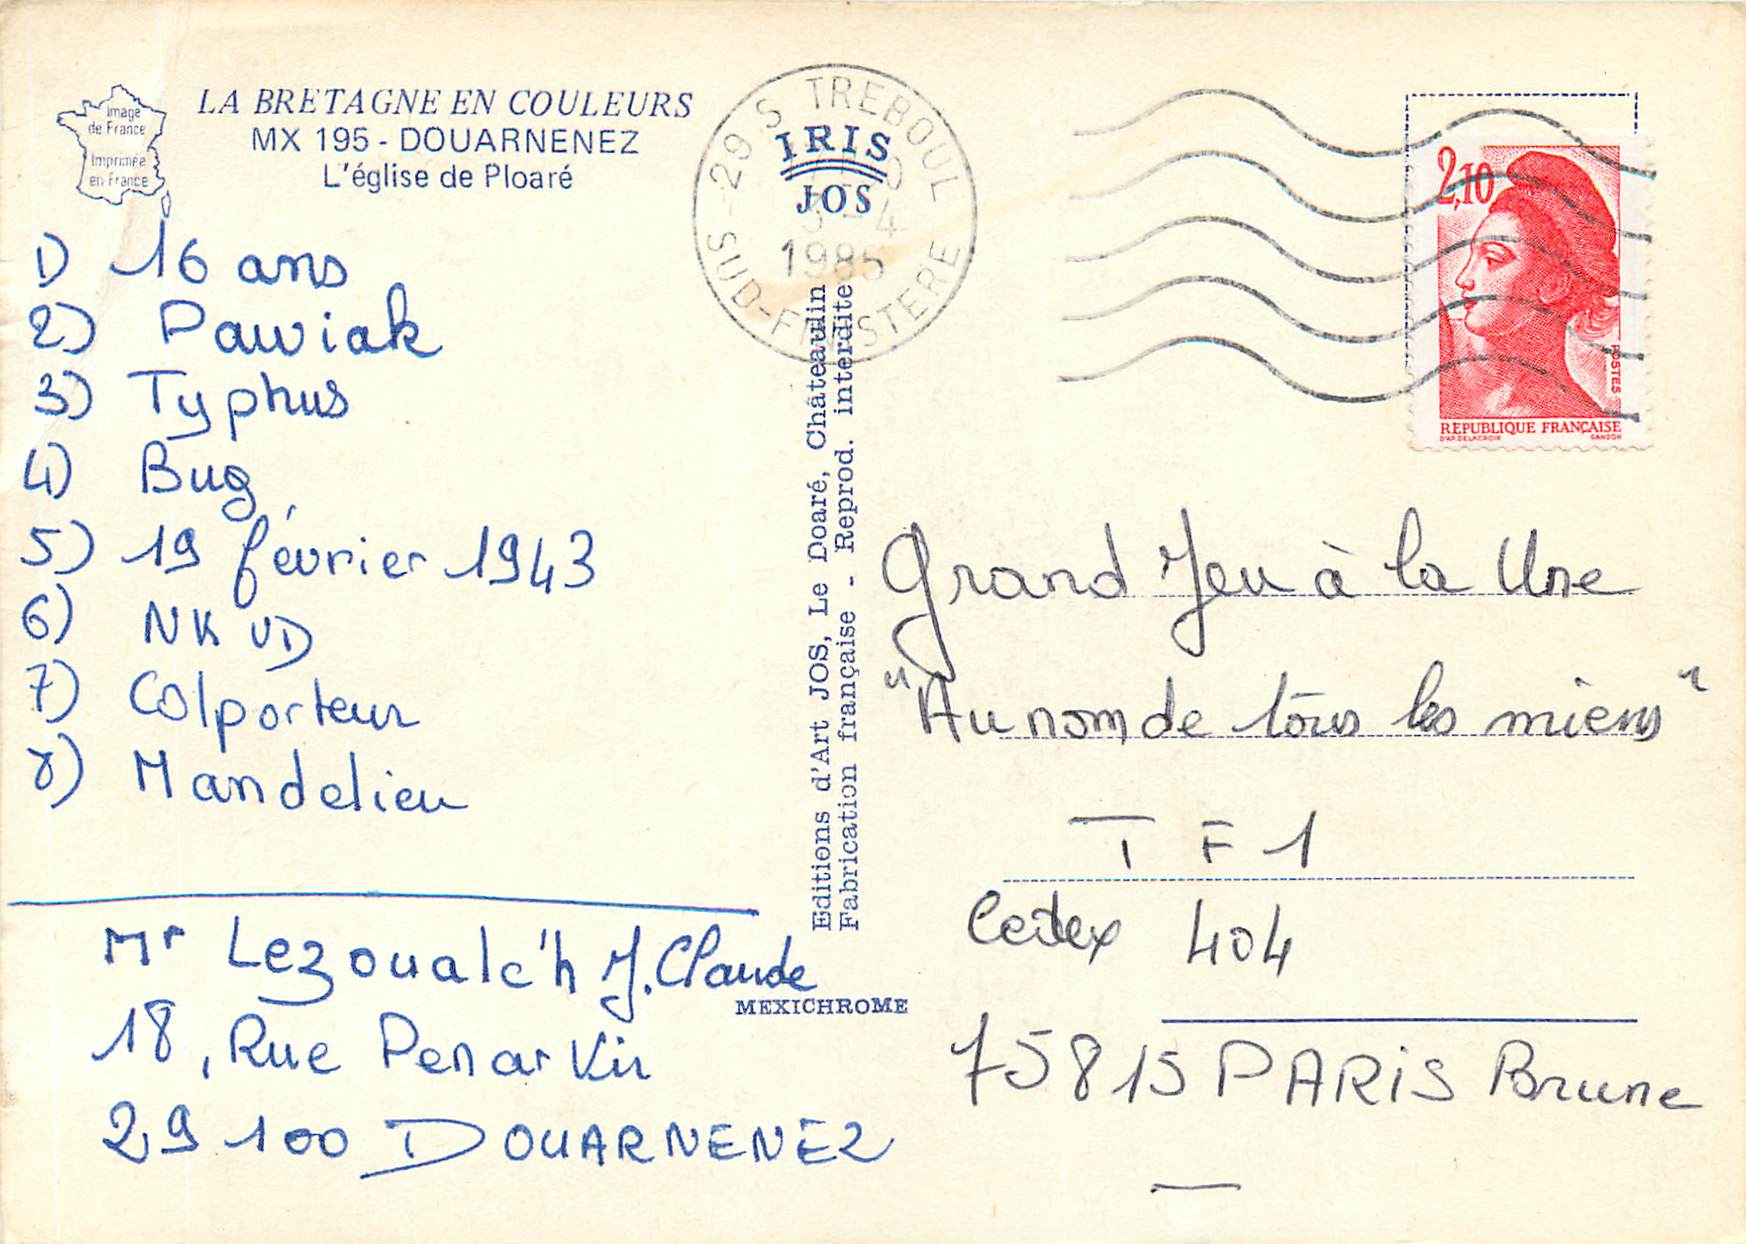 Image
de France
Imprimée
en France
LA BRETAGNE EN COULEURS
MX 195 - DOUARNENEZ
L'église de Ploaré
1) 16 ans
2) Pawiak
3) Typhus
4) Bug
5) 19 février 1943
6) NKVD
7) Colporteur
8) Mandelieu
Mr Lezoualc'h J.Claude
18, Rue Penar Vir
29100 DOUARNENEZ
IRIS
JOS
29 S TREBOUL
SUD-FINISTERE
-4
1985
Editions d'Art JOS, Le Doaré, Châteaulin
Fabrication française - Reprod. interdite
MEXICHROME
2,10
POSTES
REPUBLIQUE FRANÇAISE
D'AP. DELACROIX GANDON
Grand Jeu à la Une
"Au nom de tous les miens"
TF1
Cedex 404
75815 PARIS Brune